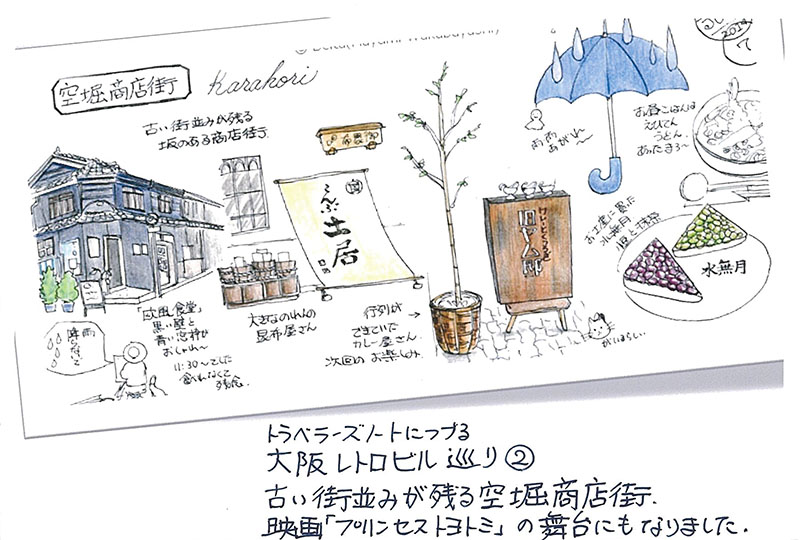 空堀商店街
Karahori
古い街並みが残る
坂のある商店街
雨雨
あがれ〜
お昼ごはんは
えびてん
うどん
あったまる〜
こんぶ
土居
お土産に買った
水無月
水無月
「欧風食堂」
黒い壁と
青い窓枠が
おしゃれ〜
11:30〜でした
食べれなくて
残念
大きなのれんの
昆布屋さん
行列が
できていた
カレー屋さん
次回のお楽しみ
旧ヤム邸
がいるらしい
トラベラーズノートにつづる
大阪レトロビル巡り②
古い街並みが残る空堀商店街.
映画「プリンセストヨトミ」の舞台にもなりました.